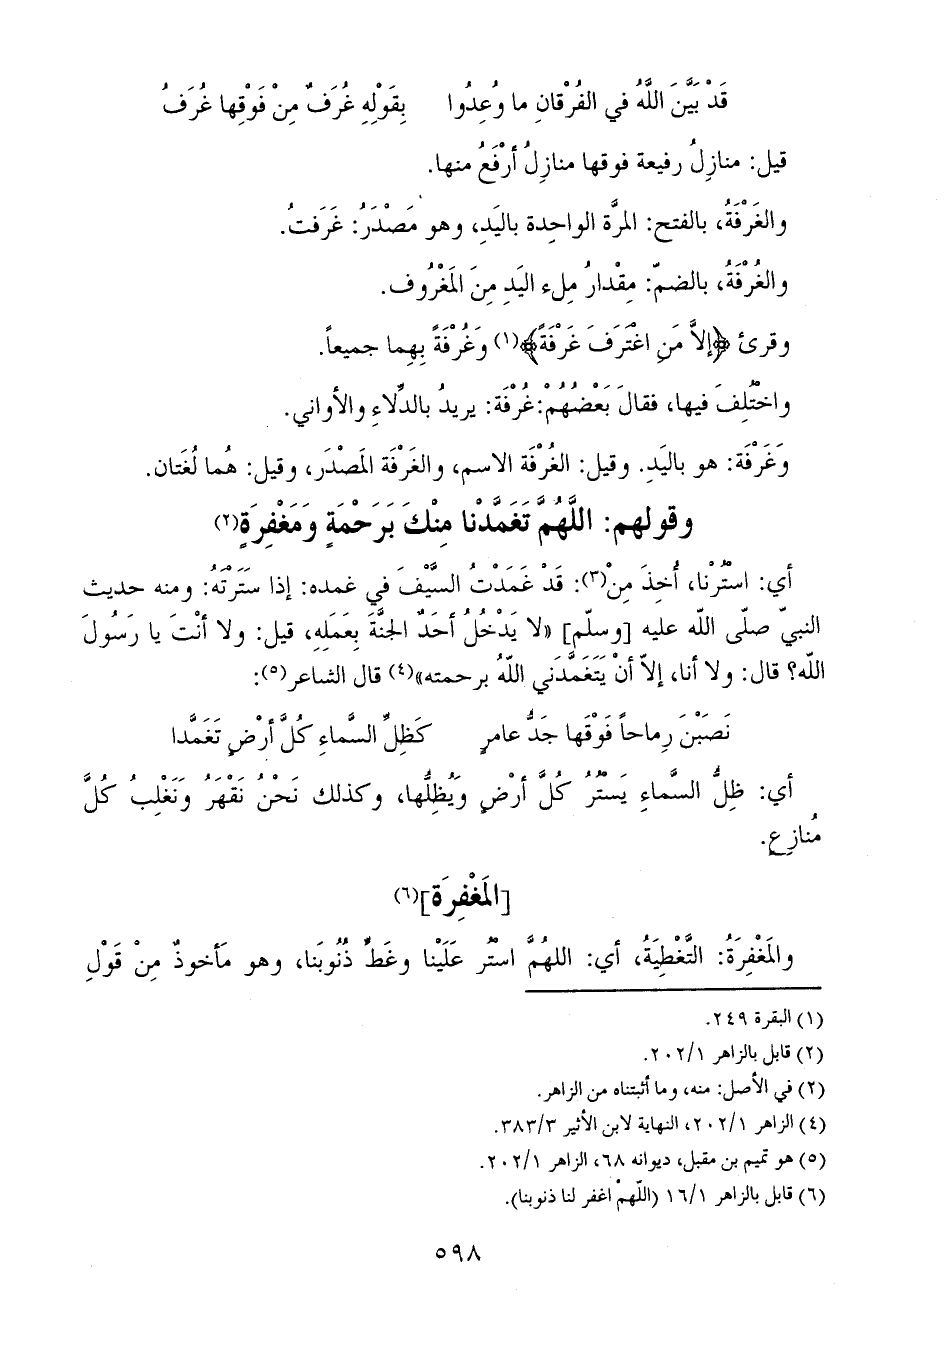 قَدْ بَيَّنَ اللَّهُ في الفُرْقانِ ما وُعِدُوا بِقَوْلِهِ غُرَفٌ مِنْ فَوْقِها غُرَفُ
قيل: منازِلُ رفيعة فوقها منازِلُ أرْفَعُ منها.
والغَرْفَةُ، بالفتح: المرَّة الواحِدة باليَدِ، وهو مَصْدَرُ: غَرَفتُ.
والغُرْفَةُ، بالضمّ: مِقْدارُ مِلء اليَدِ مِنَ المَغْرُوف.
وقرئ ﴿إلاَّ مَنِ اغْتَرَفَ غَرْفَةً﴾(١) وَغُرْفَةً بِهِما جميعاً.
واختُلِفَ فيها، فقالَ بَعْضُهُمْ:غُرْفَة: يريدُ بالدِّلاءِ والأواني.
وَغَرْفَة: هو باليَدِ. وقيل: الغُرْفَة الاسم، والغَرْفَة المَصْدَر، وقيل: هُما لُغَتان.
وقولهم: اللَّهُمَّ تَغَمَّدْنا مِنْكَ بَرَحْمَةٍ وَمَغْفِرَةٍ(٢)
أي: اسْتُرْنا، أُخِذَ مِنْ(٣): قَدْ غَمَدْتُ السَّيْفَ في غمده: إذا سَتَرتَهُ: ومنه حديث
النبيّ صلّى الله عليه [وسلّم] «لا يَدْخُلُ أحَدٌ الجنَّةَ بِعَمَلِهِ، قيل: ولا أنْتَ يا رَسُولَ
الله؟ قال: ولا أنا، إلاّ أنْ يَتَغَمَّدَني اللّهُ برحمته»(٤) قال الشاعر(٥):
نَصَبْنَ رِماحاً فَوْقَها جَدُّ عامرٍ كَظِلِّ السَّماءِ كُلَّ أرْضٍ تَغَمَّدا
أي: ظِلُّ السَّماءِ يَسْتُرُ كُلَّ أرْضٍ وَيُظِلُّها، وكذلك نَحْنُ نَقْهَرُ وَنَغْلِبُ كُلَّ
مُنازِعٍ.
[المَغْفِرَة](٦)
والمَغْفِرَةُ: التَّغْطِيَةُ، أي: اللهُمَّ استُر عَلَيْنا وغَطِّ ذُنُوبَنا، وهو مَأخوذٌ مِنْ قَوْلِ
(١) البقرة ٢٤٩.
(٢) قابل بالزاهر ٢٠٢/١.
(٢) في الأصل: منه، وما أثبتناه من الزاهر.
(٤) الزاهر ٢٠٢/١، النهاية لابن الأثير ٣٨٣/٣.
(٥) هو تميم بن مقبل، ديوانه ٦٨، الزاهر ٢٠٢/١.
(٦) قابل بالزاهر ١٦/١ (اللّهمْ اغفر لنا ذنوبنا).
٥٩٨